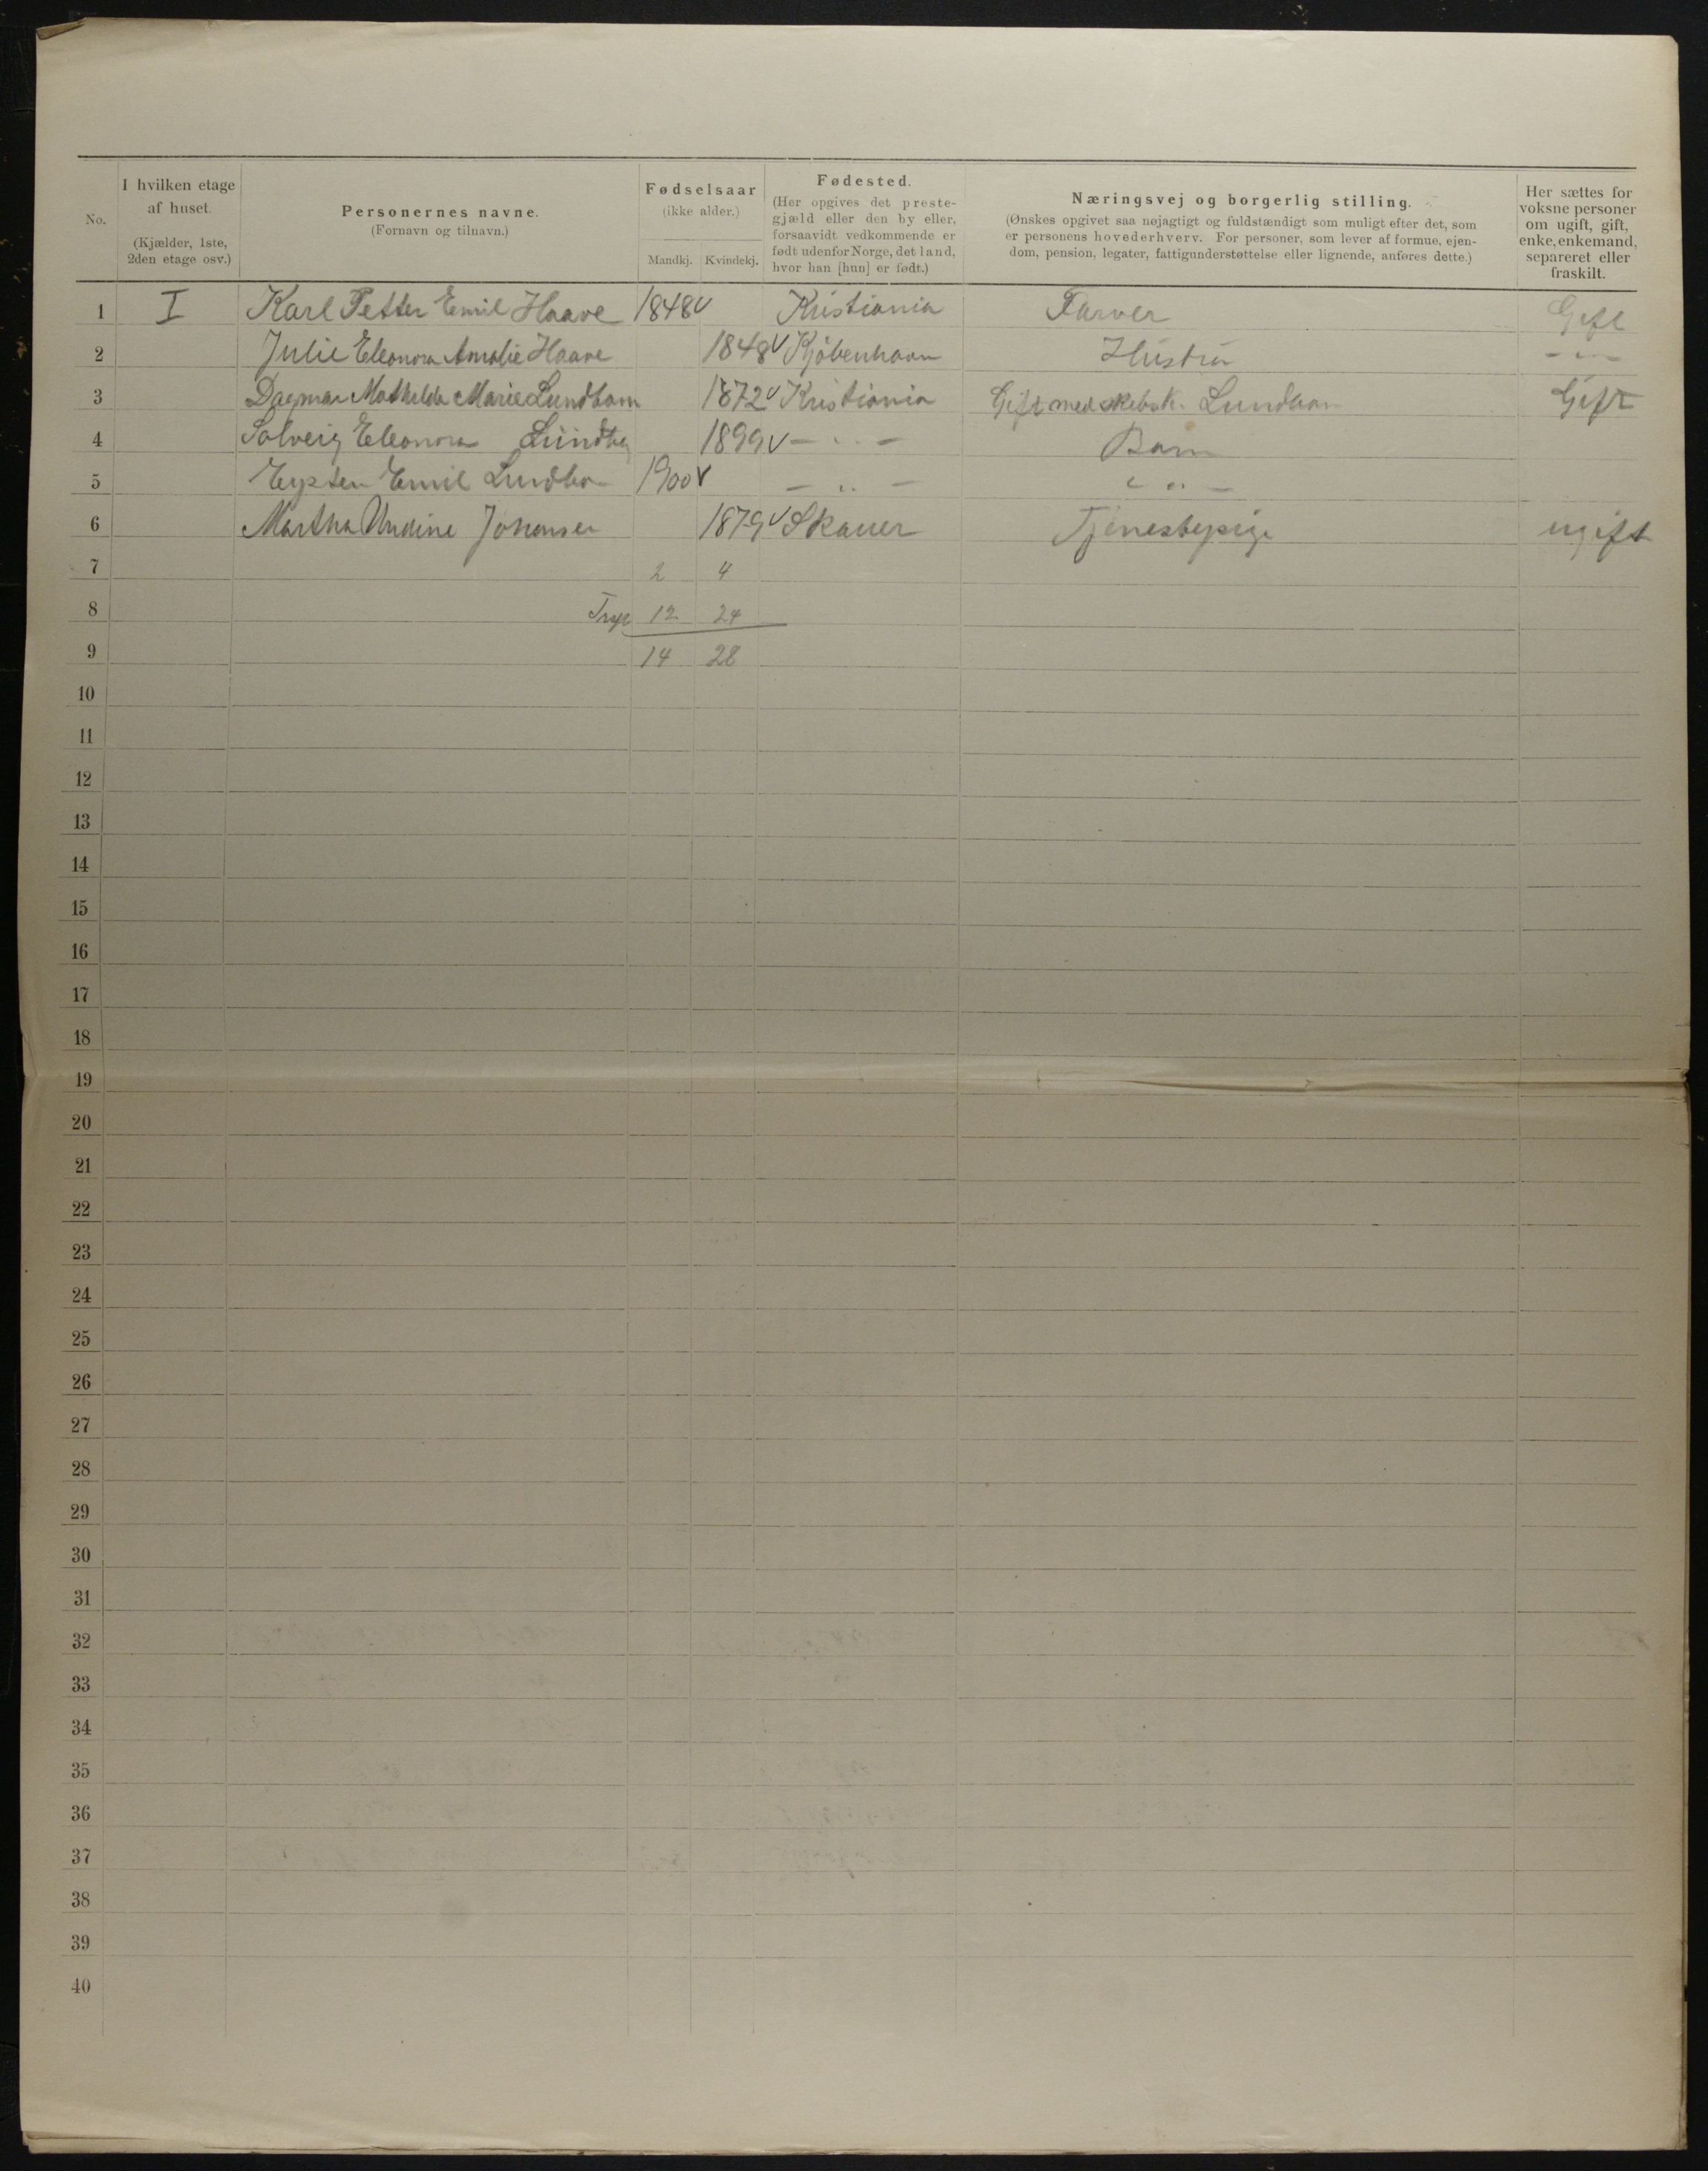 No.
I hvilken etage af huset.
(Kjælder, 1ste, 2den etage osv.)
Personernes navne.
(Fornavn og tilnavn.)
Fødselsaar
(ikke alder.)
Mandkj. Kvindekj.
Fødested.
(Her opgives det preste-
gjæld eller den by eller,
forsaavidt vedkommende er
født udenfor Norge, det land,
hvor han [hun] er født.)
Næringsvej og borgerlig stilling.
(Ønskes opgivet saa nøjagtigt og fuldstændigt som muligt efter det, som
er personens hovederhverv. For personer, som lever af formue, ejen-
dom, pension, legater, fattigunderstøttelse eller lignende, anføres dette.)
Her sættes for
voksne personer
om ugift, gift,
enke, enkemand,
separeret eller
fraskilt.
1 I Karl Petter Emil Haave 1848 v Kristiania Farver Gift
2 Julie Eleonora Amalie Haave 1848 v Kjøbenhavn Hustru - " -
3 Dagmar Mathilde Marie 1872 v Kristiania Gift med Gift
4 Solveig Eleonora 1899 v - " - Barn
5 Emil 1900 v - " - - " -
6 Martha Undine Johansen 1879 v Skauer Tjenestepige ugift
7 2 4
8 12 24
9 14 28
10
11
12
13
14
15
16
17
18
19
20
21
22
23
24
25
26
27
28
29
30
31
32
33
34
35
36
37
38
39
40